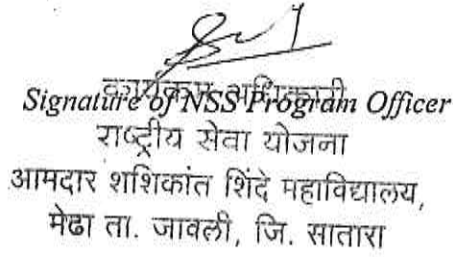 कार्यक्रम अधिकारी
Signature of NSS Program Officer
राष्ट्रीय सेवा योजना
आमदार शशिकांत शिंदे महाविद्यालय,
मेढा ता. जावली, जि. सातारा